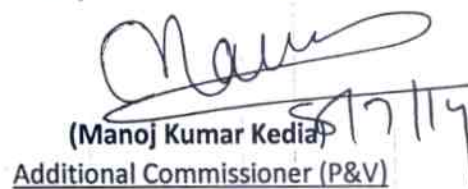 (Manoj Kumar Kedia)
8/7/14
Additional Commissioner (P&V)